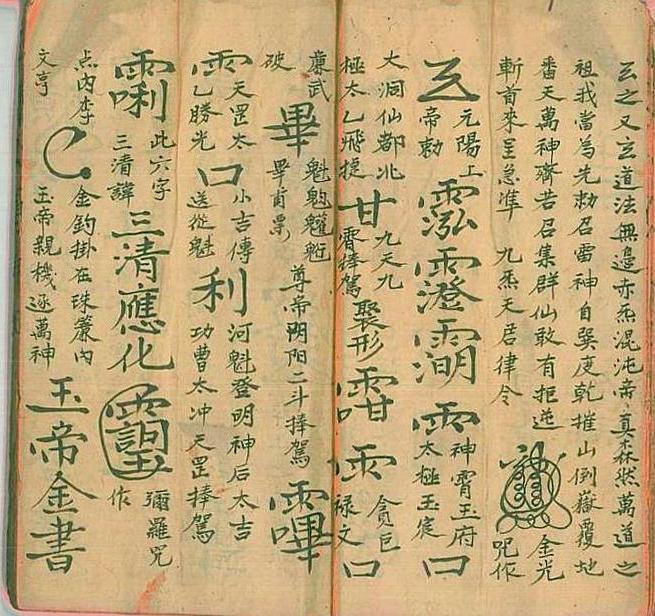 玄之又玄道法無邊赤炁混沌帝真森然萬道之
祖我當為先勅召雷神自巽度乾摧山倒嶽覆地
番天萬神齊苦召集群仙敢有拒逆
斬首來呈急準 九炁天君律令 金光咒作
元陽上帝勅 雨 神霄玉府太極玉宸 口
大洞仙都北極太乙飛捷 甘 九天九霄捧駕 聚形 雨 貪巨祿文 口
廉武破 畢 尊帝阴阳二斗捧駕
雨 天罡太乙勝光 口 小吉傳送從魁 利 河魁登明神后太吉功曹太冲天罡捧駕
此六字三清諱 三清應化 彌羅咒作
点内李文亨 金鈎掛在珠簾内玉帝親機逐萬神 玉帝金書